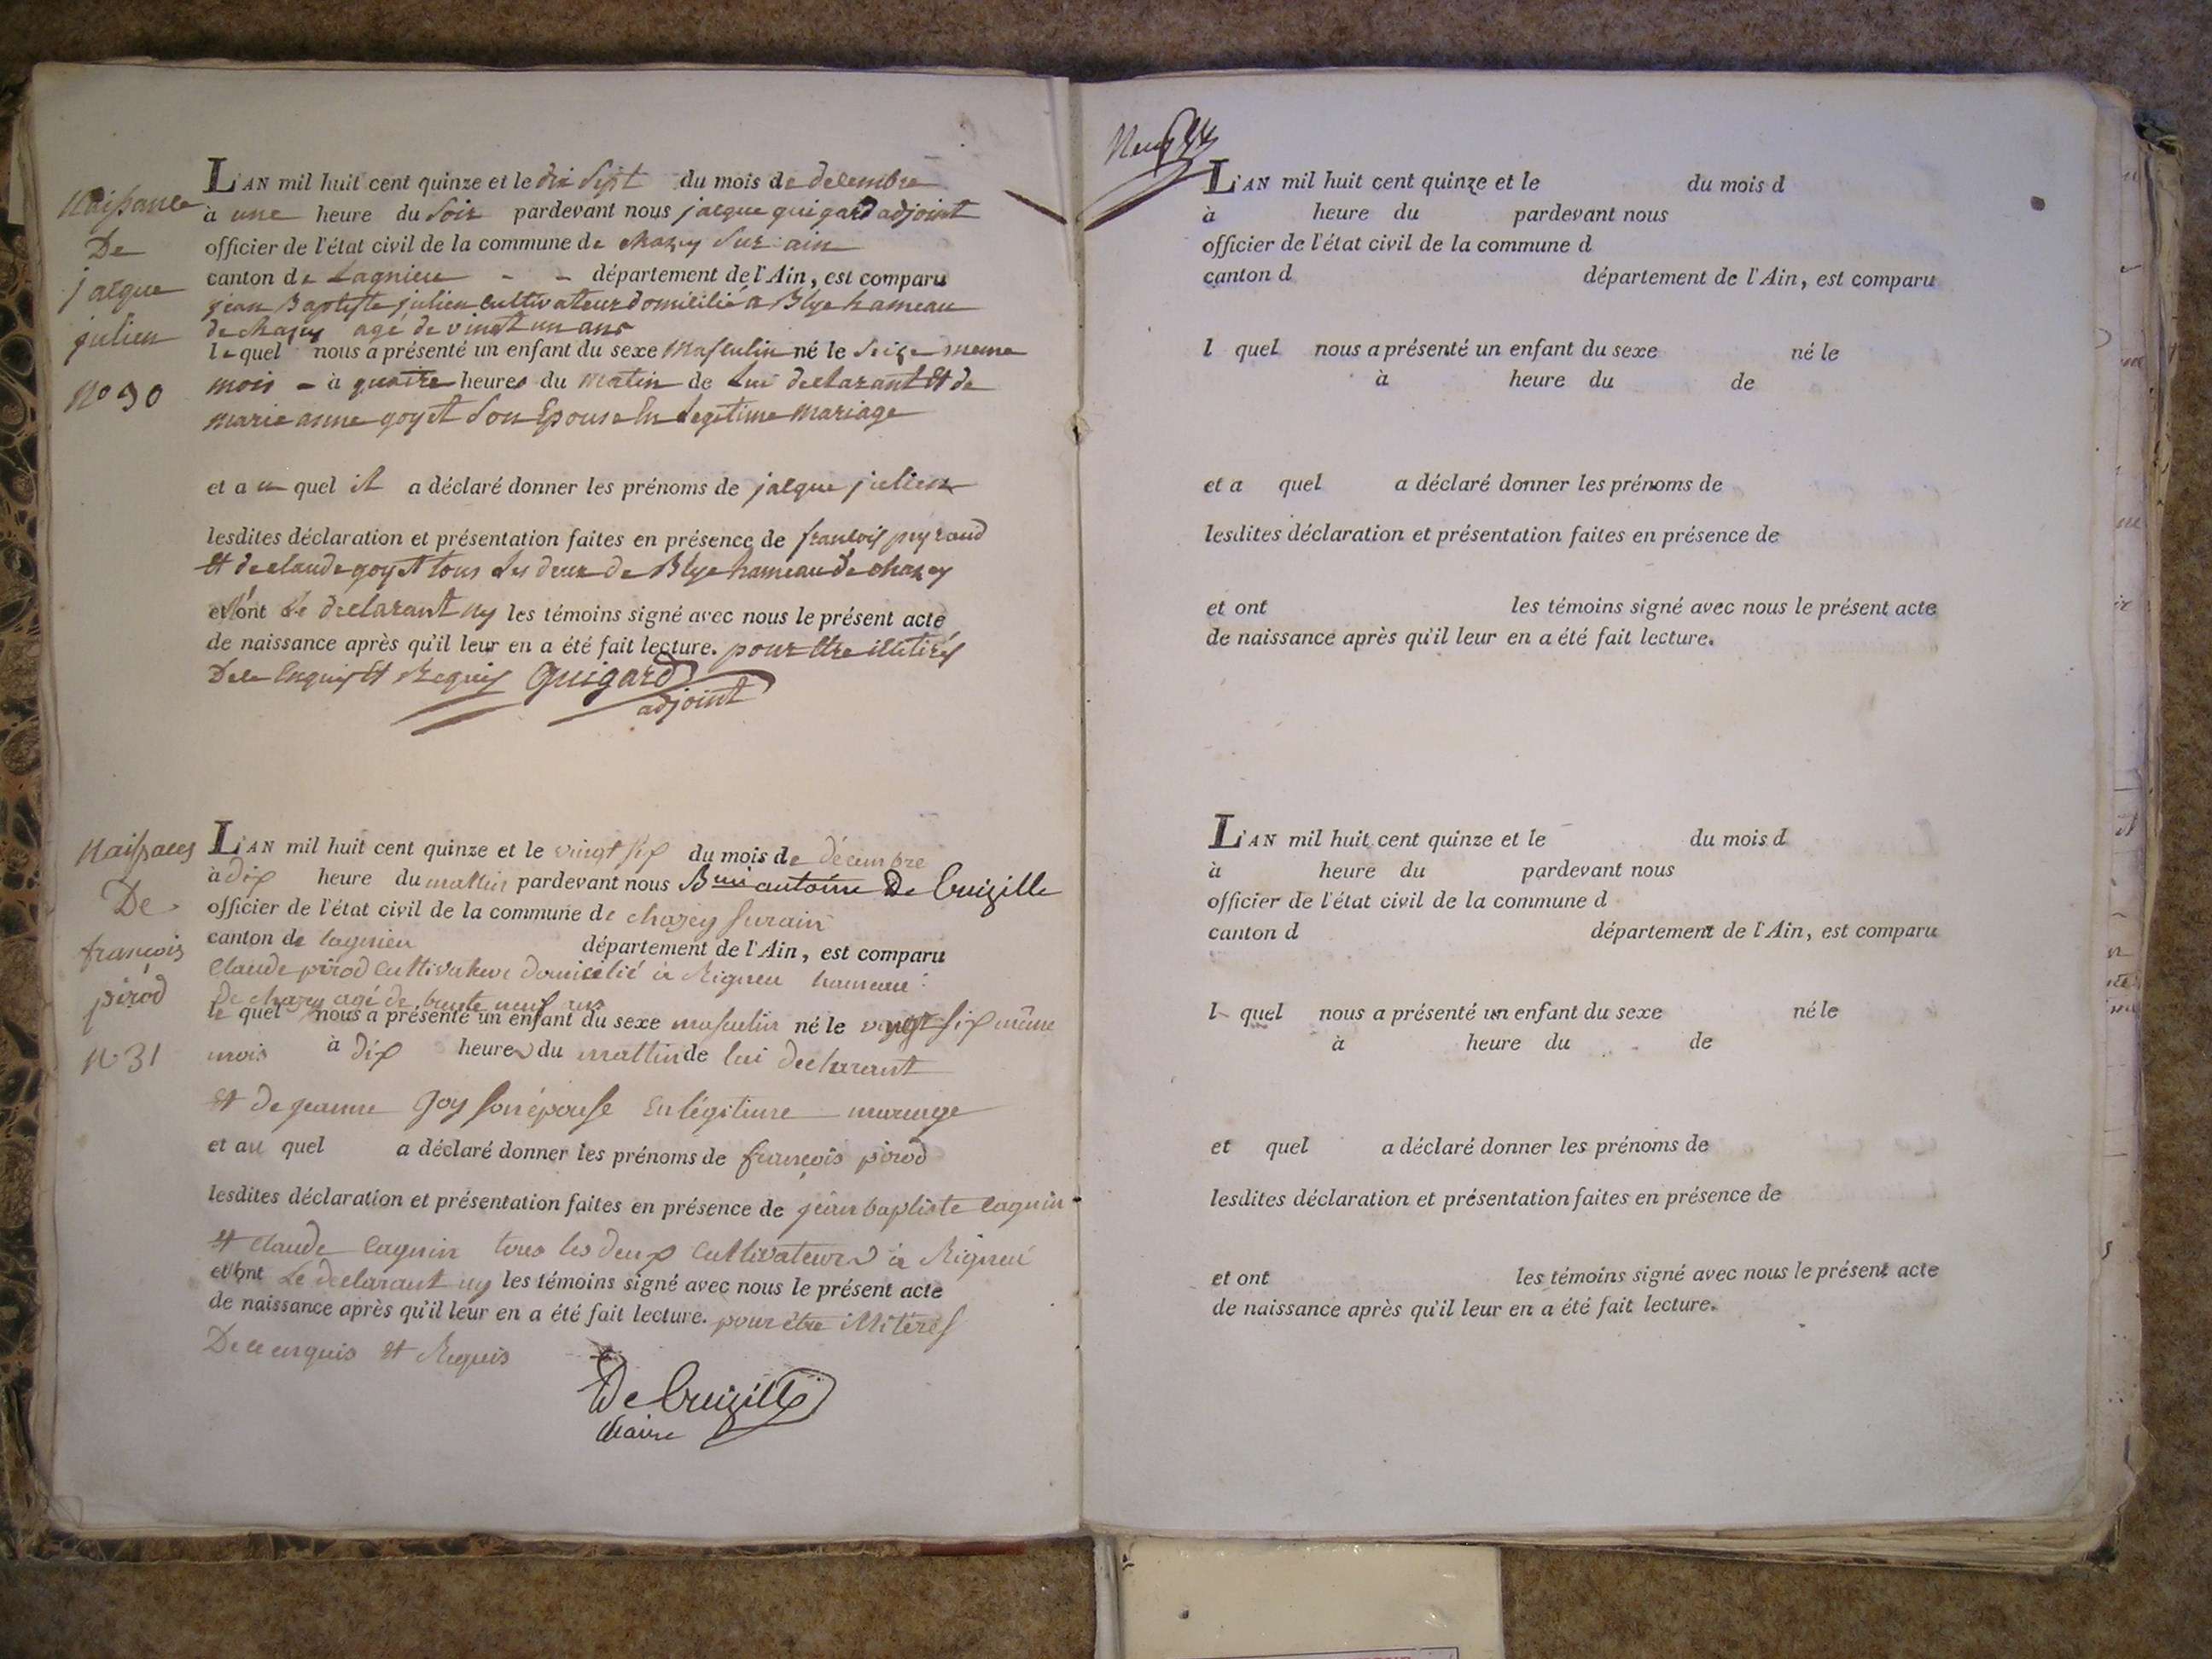 Naissance
De
jacque
julien
No 30
L'AN mil huit cent quinze et le dix sept du mois de decembre
à une heure du soir pardevant nous jacque guigard adjoint
officier de l'état civil de la commune de chazey sur ain
canton de Lagnieu - - département de l'Ain, est comparu
jean Baptiste julien cultivateur domicilié a Blye hameau
de chazey agé de vingt un ans
lequel nous a présenté un enfant du sexe masculin né le seize meme
mois - à quatre heures du matin de lui declarant et de
marie anne goyet son Epouse En Legitime mariage
et au quel il a déclaré donner les prénoms de jacque julien
lesdites déclaration et présentation faites en présence de francois peyraud
et de claude goyet tous les deux de Blye hameau de chazey
et n'ont Le declarant ny les témoins signé avec nous le présent acte
de naissance après qu'il leur en a été fait lecture. pour être illitirés
De ce Enquis et Requis Guigard
adjoint
Naissances
De
françois
pirod
No 31
L'AN mil huit cent quinze et le vingt six du mois de décembre
à dix heure du mattin pardevant nous antoine De Cruizille
officier de l'état civil de la commune de chazey sur ain
canton de lagnieu département de l'Ain, est comparu
Claude pirod cultivateur domicilié à Rigneu hameau
De chazey agé de trente neuf ans
le quel nous a présenté un enfant du sexe masculin né le vingt six même
mois à dix heures du mattin de lui declarant
et de jeanne Goy son épouse En légitime mariage
et au quel a déclaré donner les prénoms de françois pirod
lesdites déclaration et présentation faites en présence de jean baptiste cagnin
et Claude Cagnin tous les deux Cultivateurs à Rigneu
et n'ont Le declarant ny les témoins signé avec nous le présent acte
de naissance après qu'il leur en a été fait lecture. pour être illiterés
De ce enquis et Requis
De Cruizille
Maire
L'AN mil huit cent quinze et le du mois d
à heure du pardevant nous
officier de l'état civil de la commune d
canton d département de l'Ain, est comparu
l quel nous a présenté un enfant du sexe né le
à heure du de
et a quel a déclaré donner les prénoms de
lesdites déclaration et présentation faites en présence de
et ont les témoins signé avec nous le présent acte
de naissance après qu'il leur en a été fait lecture.
L'AN mil huit cent quinze et le du mois d
à heure du pardevant nous
officier de l'état civil de la commune d
canton d département de l'Ain, est comparu
l quel nous a présenté un enfant du sexe né le
à heure du de
et quel a déclaré donner les prénoms de
lesdites déclaration et présentation faites en présence de
et ont les témoins signé avec nous le présent acte
de naissance après qu'il leur en a été fait lecture.